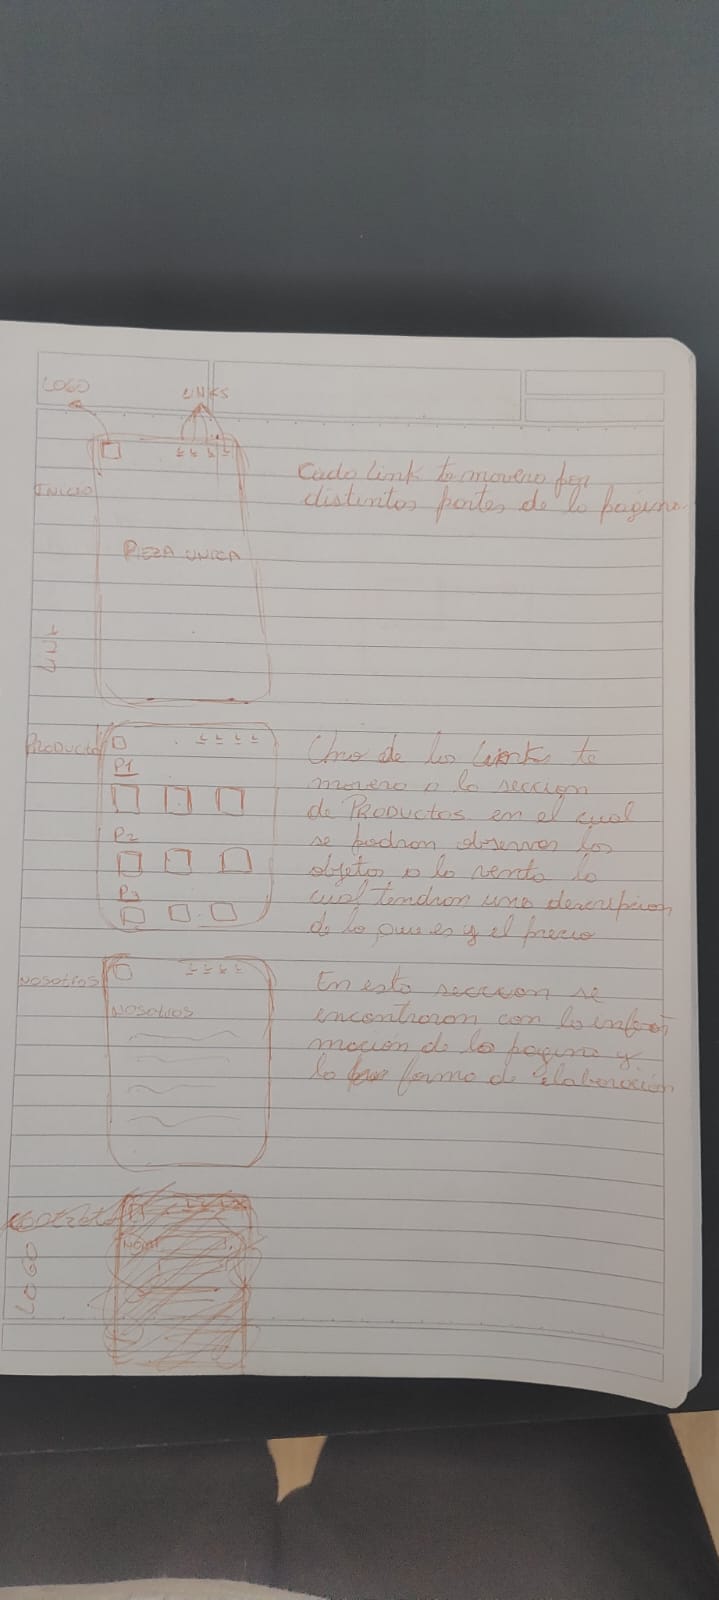 LOGO
LINKS
INICIO
Cada link te movera por
distintos partes de la pagina
PIEZA UNICA
LINK
PRODUCTO
P1
P2
P3
Uno de los Links te
movera a la seccion
de PRODUCTOS en el cual
se podran observar los
objetos a la venta lo
cual tendran una descripcion
de lo que es y el precio
NOSOTROS
NOSOTROS
En esta seccion se
encontraran con la infor
macion de la pagina y
la forma de elaboración
LOGO